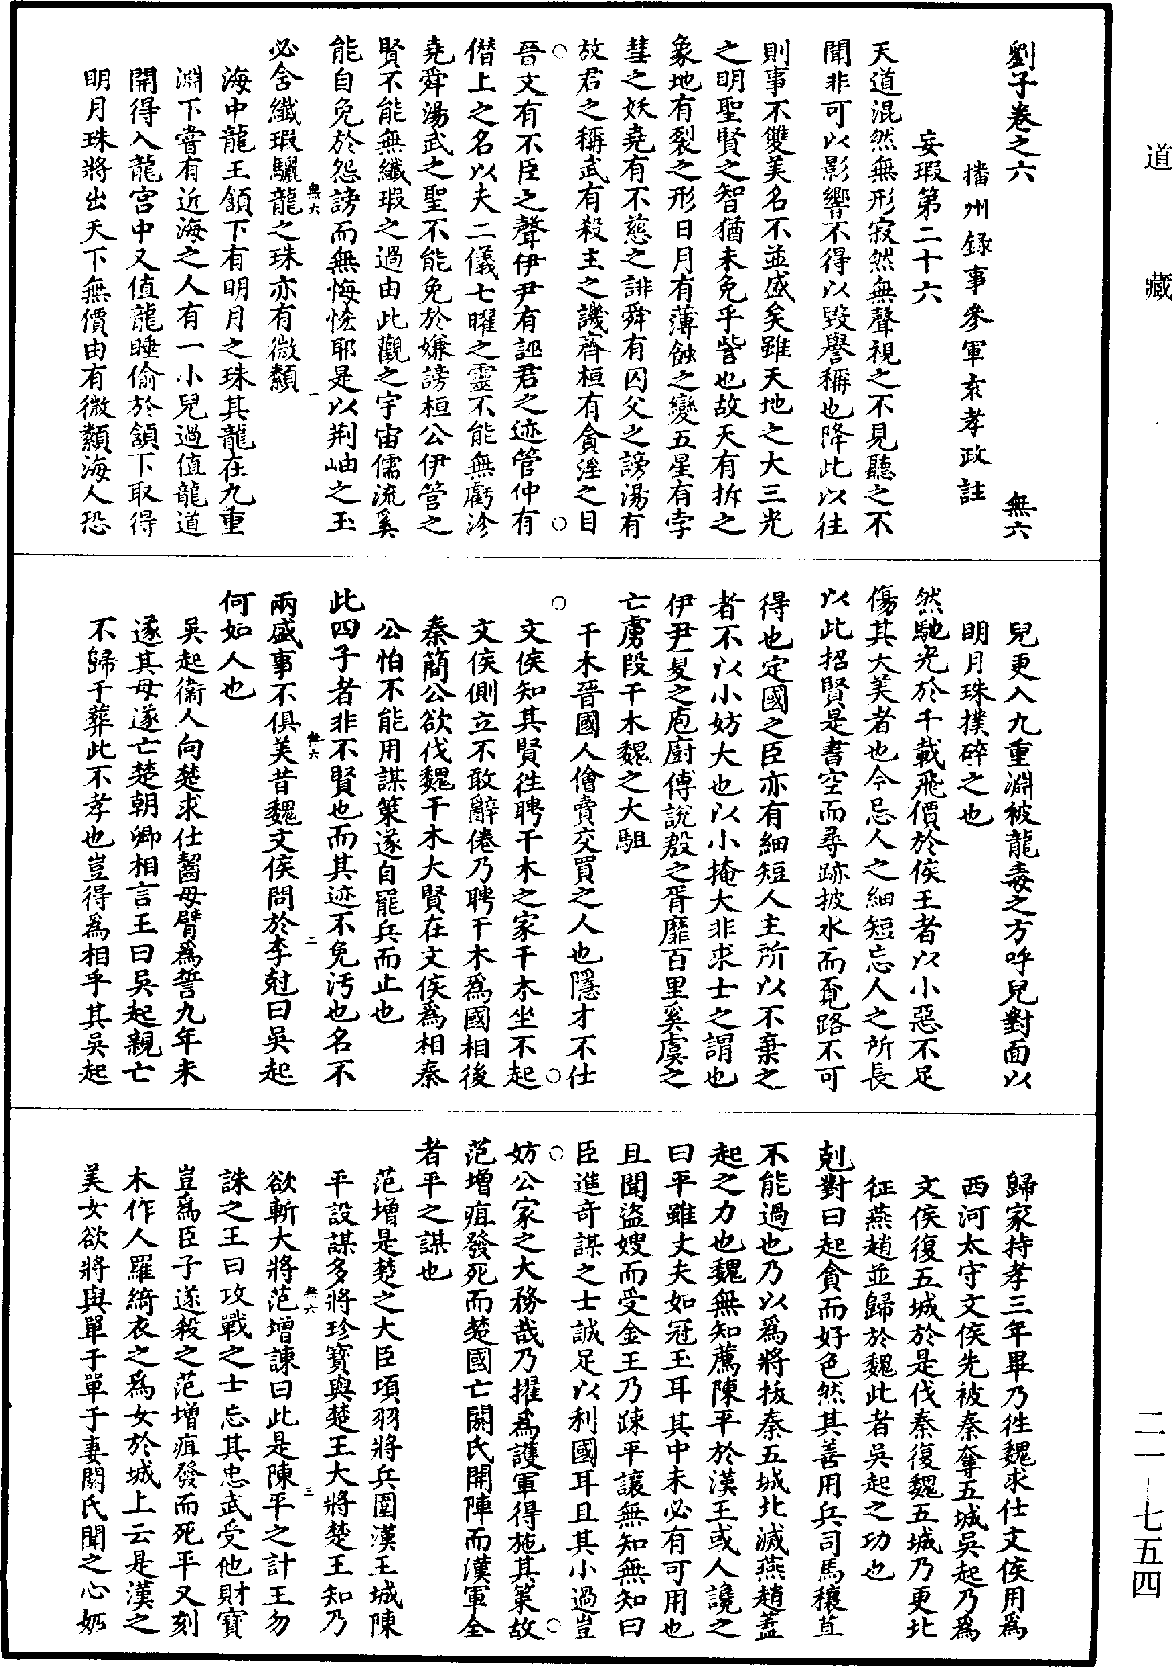 道藏
劉子卷之六　無六
播州錄事參軍袁孝政註
妄瑕第二十六
天道混然無形寂然無聲視之不見聽之不
聞非可以影響不得以毀譽稱也降此以往
則事不雙美名不並盛矣雖天地之大三光
之明聖賢之智猶未免乎訾也故天有拆之
象地有裂之形日月有薄蝕之變五星有孛
彗之妖堯有不慈之誹舜有囚父之謗湯有
放君之稱武有殺主之譏齊桓有貪淫之目
晉文有不臣之聲伊尹有誣君之迹管仲有
僭上之名以夫二儀七曜之靈不能無虧沴
堯舜湯武之聖不能免於嫌謗桓公伊管之
賢不能無纖瑕之過由此觀之宇宙儒流奚
能自免於怨謗而無悔恡耶是以荆岫之玉
必含纖瑕驪龍之珠亦有微纇
無六　一
海中龍王頷下有明月之珠其龍在九重
淵下嘗有近海之人有一小兒過值龍道
開得入龍宮中又值龍睡偷於頷下取得
明月珠將出天下無價由有微纇海人恐
兒更入九重淵被龍毒之方呼兒對面以
明月珠撲碎之也
然馳光於千載飛價於侯王者以小惡不足
傷其大美者也今忌人之細短忘人之所長
以此招賢是書空而尋跡披水而覓路不可
得也定國之臣亦有細短人主所以不棄之
者不以小妨大也以小掩大非求士之謂也
伊尹夏之庖廚傅說殷之胥靡百里奚虞之
亡虜段干木魏之大駔
干木晉國人儈賣交買之人也隱才不仕
文侯知其賢往聘干木之家干木坐不起
文侯側立不敢辭倦乃聘干木為國相後
秦簡公欲伐魏干木大賢在文侯為相秦
公怕不能用謀策遂自罷兵而止也
此四子者非不賢也而其迹不免汚也名不
兩盛事不俱美昔魏文侯問於李尅曰吳起
無六　二
何如人也
吳起衛人向楚求仕齧母臂為誓九年未
遂其母遂亡楚朝卿相言王曰吳起親亡
不歸于葬此不孝也豈得為相乎其吳起
歸家持孝三年畢乃往魏求仕文侯用為
西河太守文侯先被秦奪五城吳起乃為
文侯復五城於是伐秦復魏五城乃更北
征燕趙並歸於魏此者吳起之功也
剋對曰起貪而好色然其善用兵司馬穰苴
不能過也乃以為將拔秦五城北滅燕趙蓋
起之力也魏無知薦陳平於漢王或人讒之
曰平雖丈夫如冠玉耳其中未必有可用也
且聞盜嫂而受金王乃踈平讓無知無知曰
臣進奇謀之士誠足以利國耳且其小過豈
妨公家之大務哉乃擢為護軍得施其策故
范增疽發死而楚國亡閼氏開陣而漢軍全
者平之謀也
范增是楚之大臣項羽將兵圍漢王城陳
平設謀多將珍寶與楚王大將楚王知乃
欲斬大將范增諫曰此是陳平之計王勿
無六　三
誅之王曰攻戰之士忘其忠武受他財寶
豈為臣子遂殺之范增疽發而死平又刻
木作人羅綺衣之為女於城上云是漢之
美女欲將與單于單于妻閼氏聞之心妬
二一－七五四